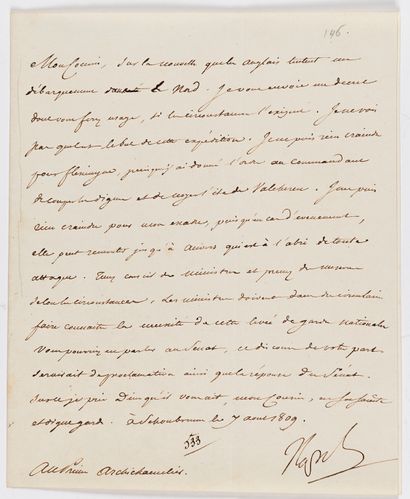 146.
Mon Cousin, sur la nouvelle que les anglais tentent un
débarquement dans le Nord. Je vous envoie un decret
dont vous ferez usage, si les circonstances l'exigent. Je ne vois
pas quel est le but de cette expédition. Je ne puis rien craindre
pour flessingue, puisque j'ai donné l'ordre au commandant
de couper les digues et de noyer l'isle de Valcheren. Je ne puis
rien craindre pour mon escadre, puisqu'en cas d'evenement,
elle peut remonter jusqu'à Anvers qui est à l'abri de toute
attaque. Tenez conseil des Ministres et prenez des mesures
selon les circonstances. Les ministres doivent dans des circulaires
faire connaitre la necessité de cette levée de garde nationale
Vous pourrez en parler au Senat, ce discours de votre part
servirait de proclamation ainsi que la réponse du Sénat.
Sur ce je prie Dieu qu'il vous ait, mon Cousin, en sa sainte
et digne garde. à Schoenbrunn le 7 aout 1809.
Nap
Au Prince Archichancelier.